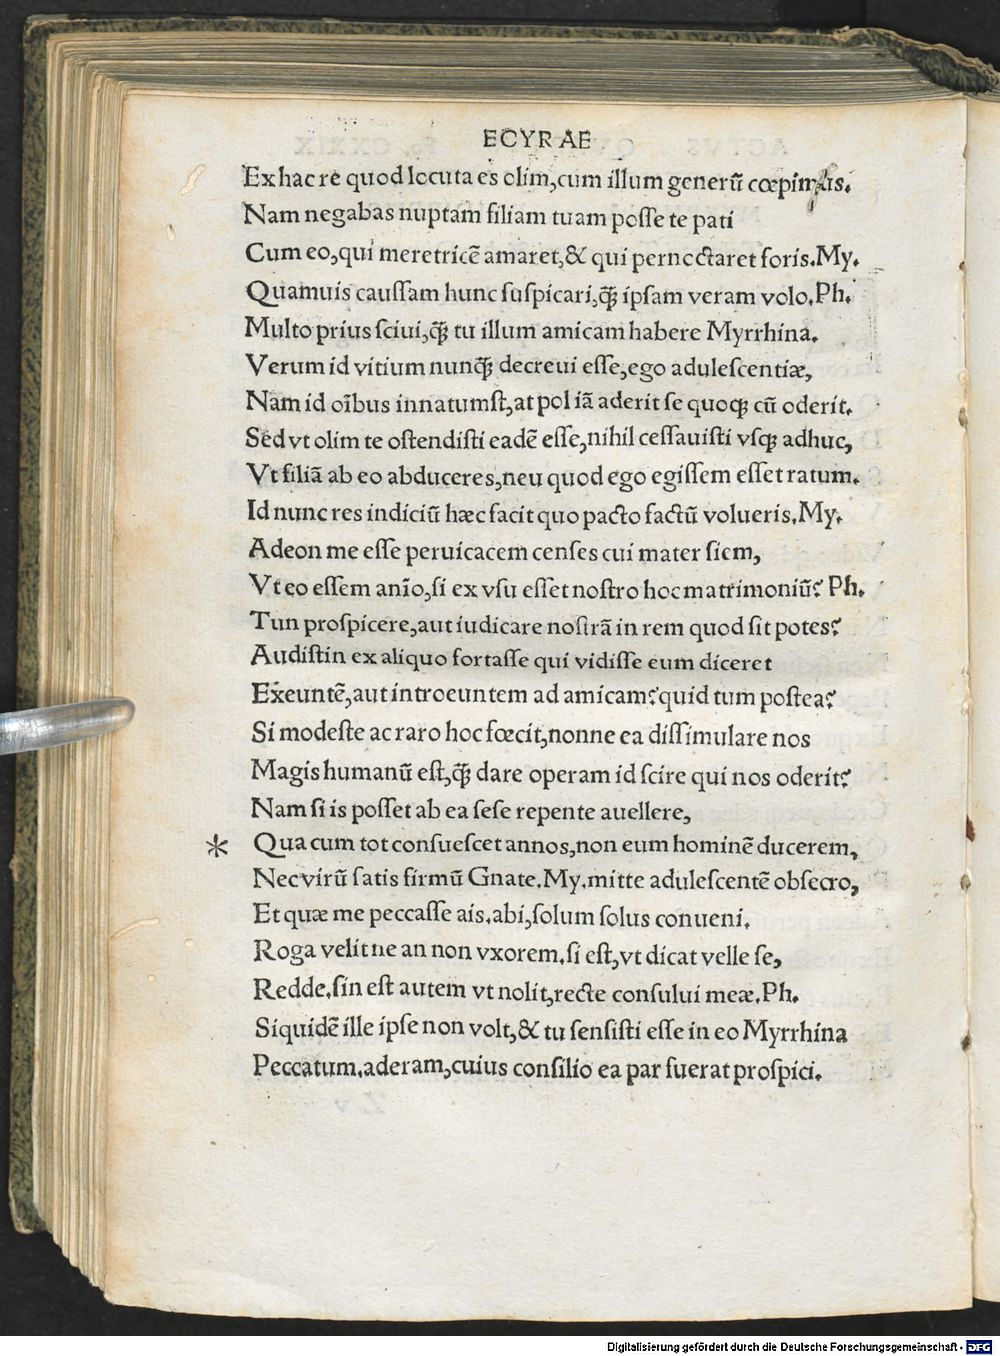 ECYRAE
Ex hac re quod locuta es olim, cum illum generū cœpimus.
Nam negabas nuptam filiam tuam posse te pati
Cum eo, qui meretricē amaret, & qui pernoctaret foris. My.
Quamuis caussam hunc suspicari, q̃ꝫ ipsam veram volo. Ph.
Multo prius sciui, q̃ꝫ tu illum amicam habere Myrrhina.
Verum id vitium nunq̃ꝫ decreui esse, ego adulescentiæ,
Nam id oības innatumst, at pol iā aderit se quoqꝫ cū oderit.
Sed vt olim te ostendisti eadē esse, nihil cessauisti vsqꝫ adhuc,
Vt filiā ab eo abduceres, neu quod ego egissem esset ratum.
Id nunc res indiciū hæc facit quo pacto factū volueris. My.
Adeon me esse peruicacem censes cui mater siem,
Vt eo essem anīo, si ex vsu esset nostro hoc matrimoniū? Ph.
Tun prospicere, aut iudicare nostrā in rem quod sit potes?
Audistin ex aliquo fortasse qui vidisse eum diceret
Exeuntē, aut introeuntem ad amicam? quid tum postea?
Si modeste ac raro hoc fœcit, nonne ea dissimulare nos
Magis humanū est, q̃ꝫ dare operam id scire qui nos oderit?
Nam si is posset ab ea sese repente auellere,
* Qua cum tot consuescet annos, non eum hominē ducerem,
Nec virū satis firmū Gnate. My. mitte adulescentē obsecro,
Et quæ me peccasse ais. abi, solum solus conueni.
Roga velit ne an non vxorem. si est, vt dicat velle se,
Redde. sin est autem vt nolit, recte consului meæ. Ph.
Siquidē ille ipse non volt, & tu sensisti esse in eo Myrrhina
Peccatum. aderam, cuius consilio ea par fuerat prospici.
Digitalisierung gefördert durch die Deutsche Forschungsgemeinschaft - DFG